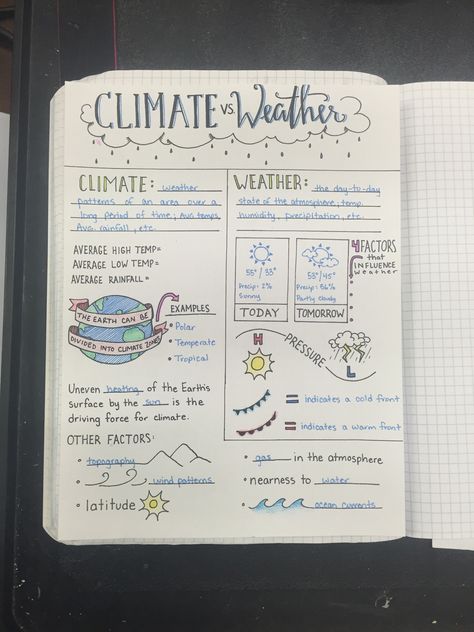 CLIMATE vs. Weather
CLIMATE: weather
patterns of an area over a
long period of time; Avg temps,
Avg. rainfall, etc.
AVERAGE HIGH TEMP=
AVERAGE LOW TEMP=
AVERAGE RAINFALL=
THE EARTH CAN BE
DIVIDED INTO CLIMATE ZONES
EXAMPLES
• Polar
• Temperate
• Tropical
Uneven heating of the Earth's
surface by the sun is the
driving force for climate.
OTHER FACTORS:
• topography
• wind patterns
• latitude
WEATHER: the day-to-day
state of the atmosphere; temp,
humidity, precipitation, etc.
55°/33°
Precip: 2%
Sunny
TODAY
53°/45°
Precip: 66%
Partly Cloudy
TOMORROW
4 FACTORS
that
INFLUENCE
weather
H
PRESSURE
L
= indicates a cold front
= indicates a warm front
• gas in the atmosphere
• nearness to water
• ocean currents